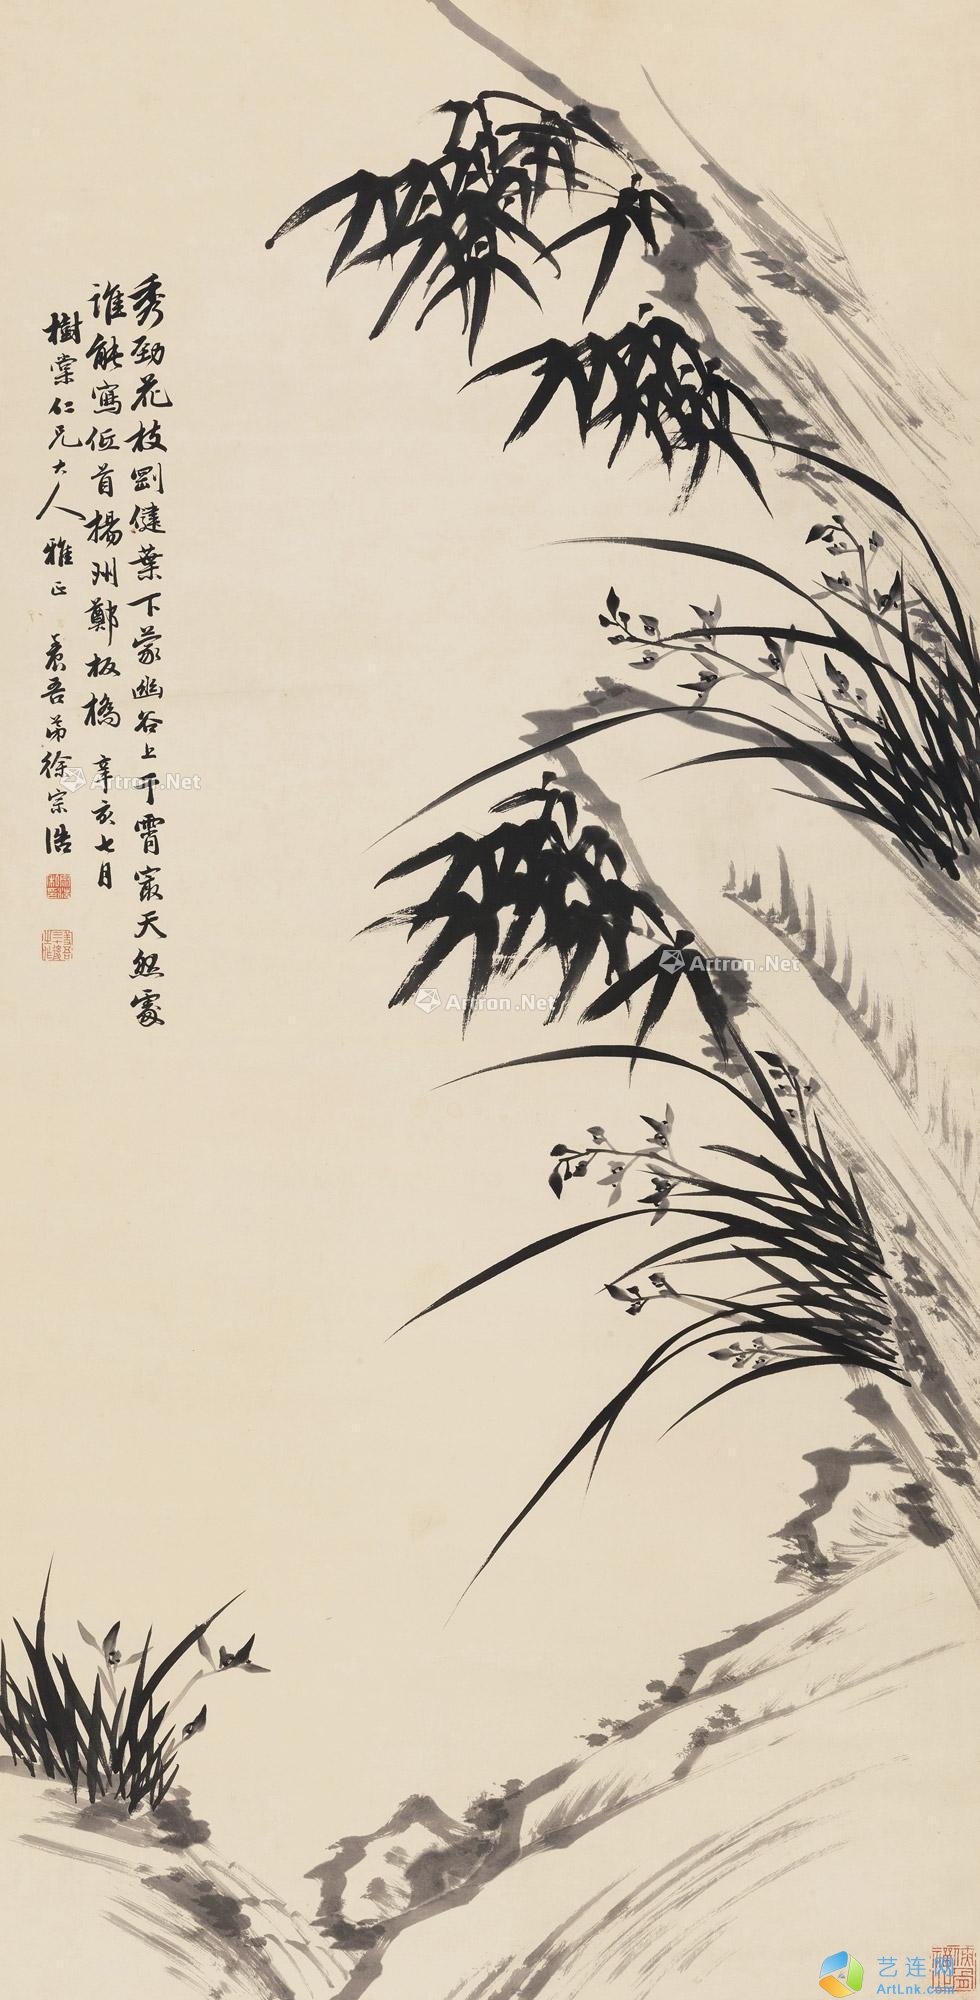 秀劲花枝刚健葉下蒙幽谷上干霄寂天然處
誰能寫低首楊州鄭板橋 辛亥七月
樹棠仁兄大人雅正 養吾弟徐宗浩
Artron.Net
Artron.Net
Artron.Net
艺连网
ArtLnk.com